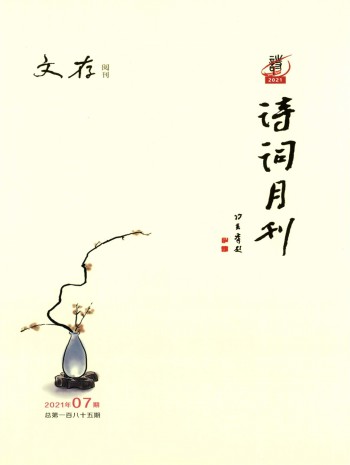 文存
阅刊
2021
诗词月刊
2021年07期
总第一百八十五期